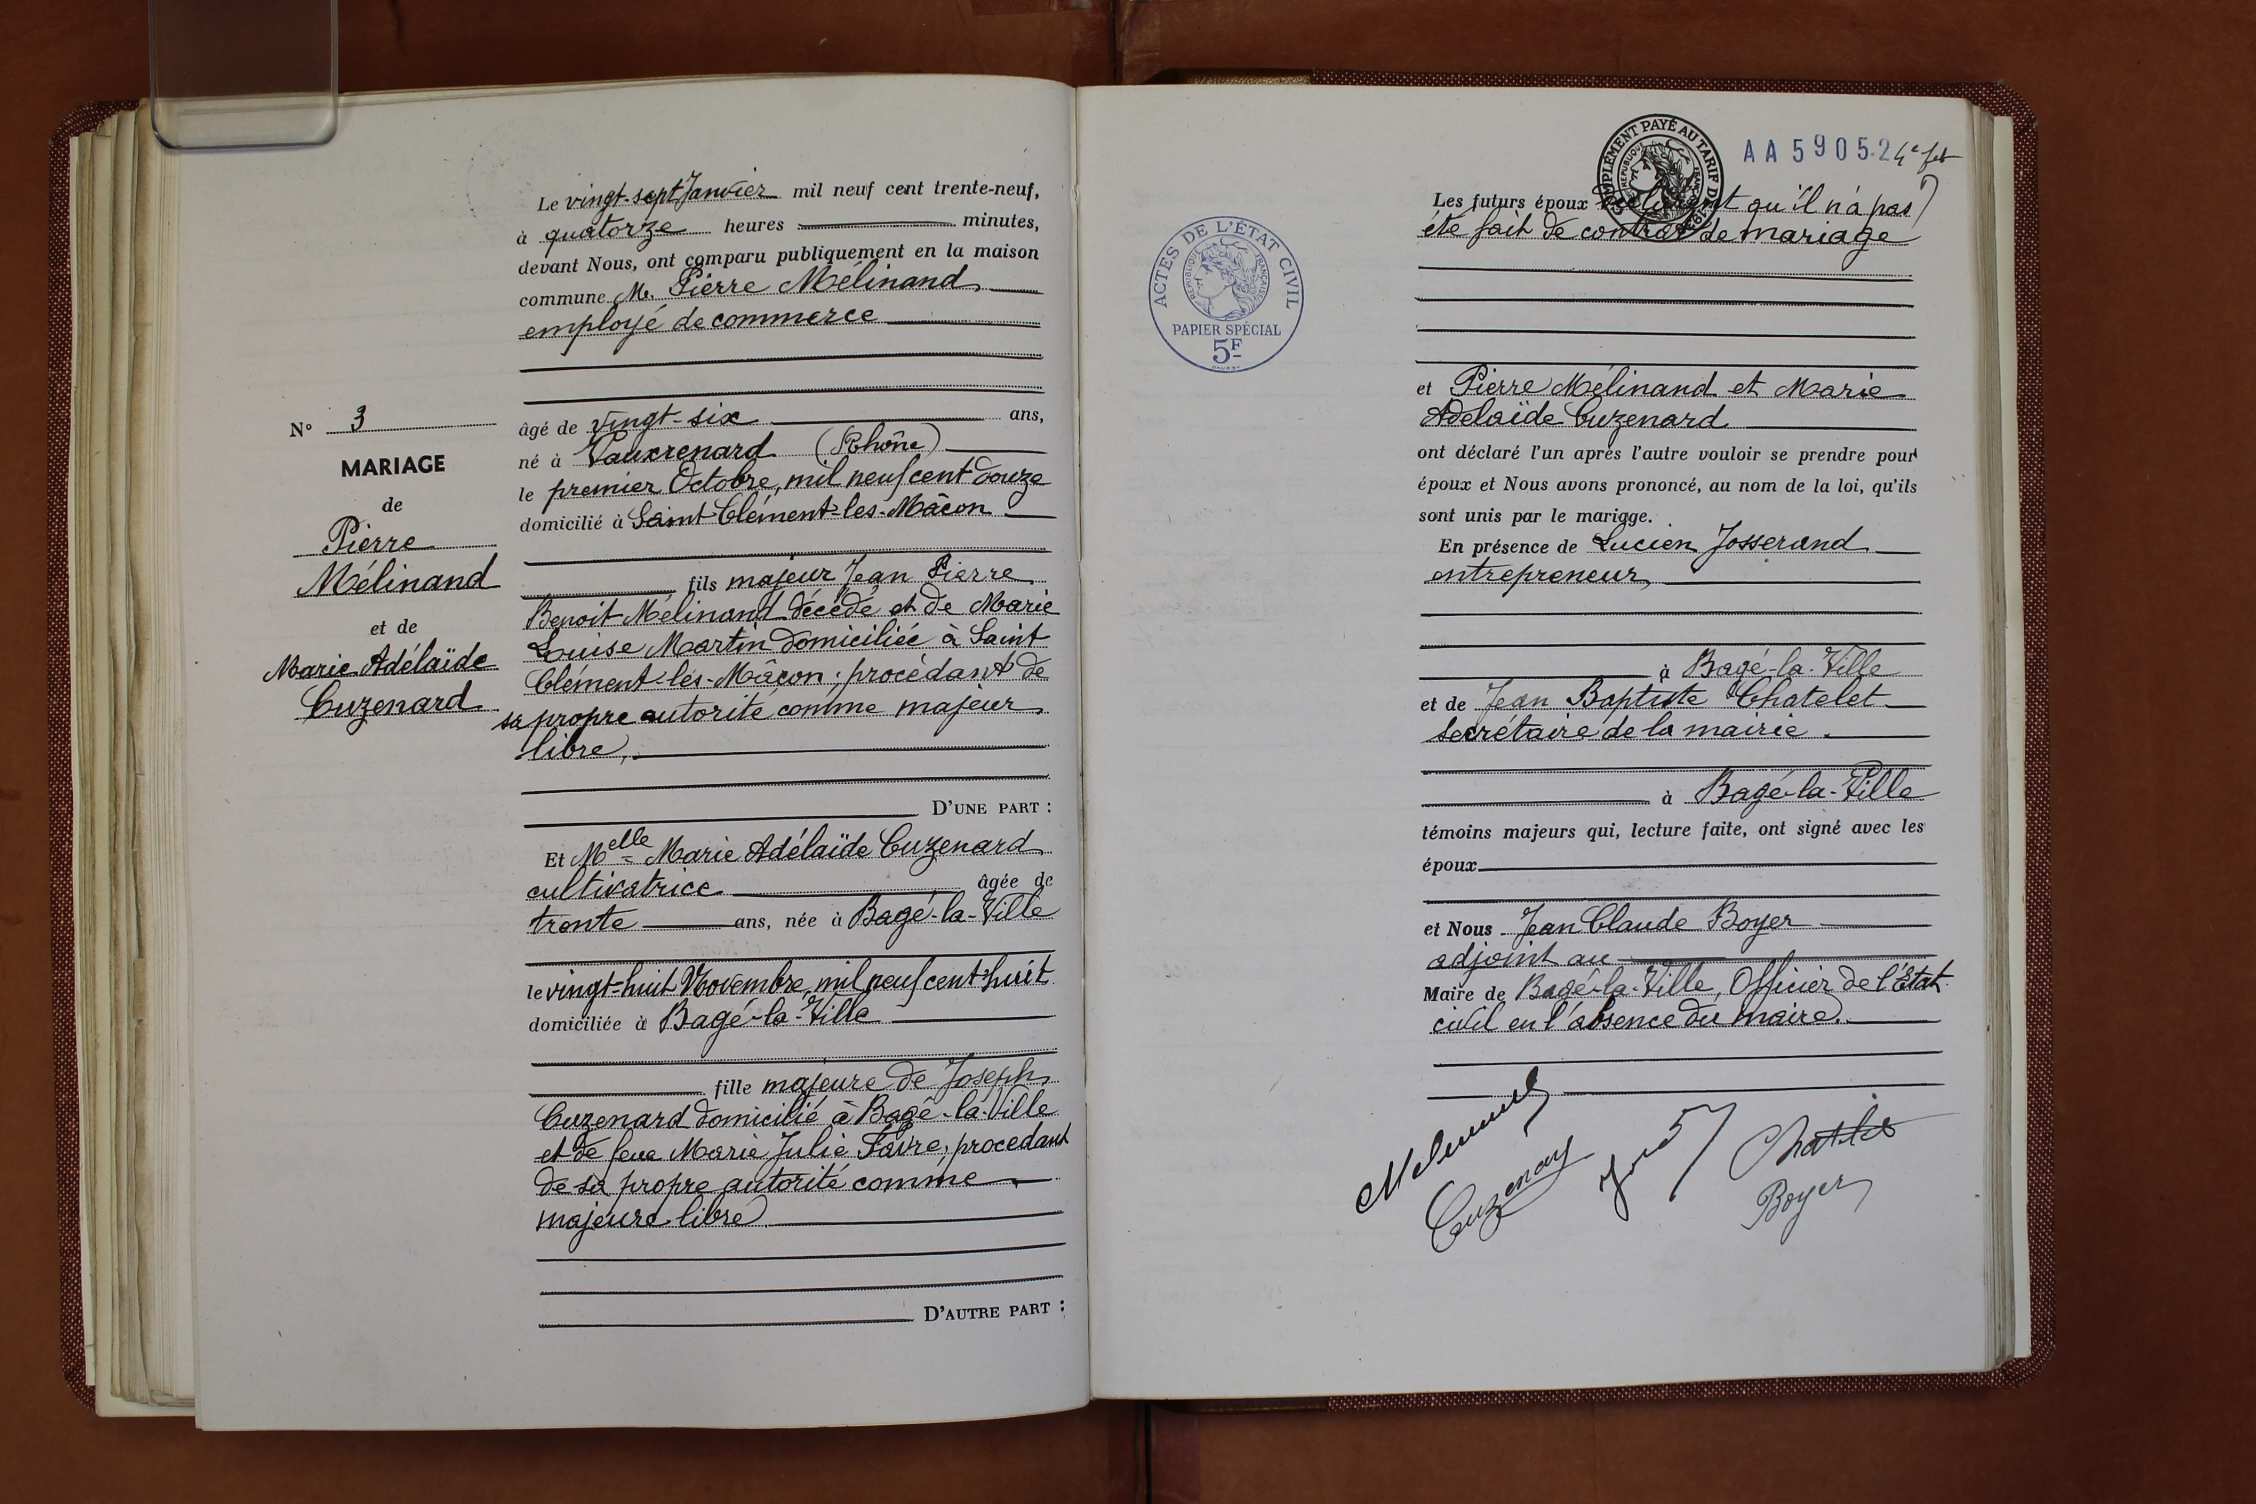 Le vingt-sept Janvier mil neuf cent trente-neuf,
à quatorze heures minutes,
devant Nous, ont comparu publiquement en la maison
commune M. Pierre Mélinand
employé de commerce
âgé de vingt-six ans,
né à Vauxrenard (Rhône)
le premier Octobre, mil neuf cent douze
domicilié à Saint-Clément-les-Mâcon
fils majeur Jean Pierre
Benoit Mélinand décédé et de Marie
Louise Martin domiciliée à Saint
Clément-les-Mâcon, procédant de
sa propre autorité comme majeur
libre,
D'UNE PART :
N° 3
MARIAGE
de
Pierre
Mélinand
et de
Marie Adélaïde
Cuzenard
Et Melle Marie Adélaïde Cuzenard
cultivatrice âgée de
trente ans, née à Bagé-la-Ville
le vingt-huit Novembre, mil neuf cent huit
domiciliée à Bagé-la-Ville
fille majeure de Joseph
Cuzenard domicilié à Bagé-la-Ville
et de feue Marie Julie Favre, procédant
de sa propre autorité comme
majeure libre
D'AUTRE PART :
ACTES DE L'ÉTAT CIVIL
RÉPUBLIQUE FRANÇAISE
PAPIER SPÉCIAL
5F
COMPLÉMENT PAYÉ AU TARIF DE
RÉPUBLIQUE FRANÇAISE
AA59052 4e
Les futurs époux déclarent qu'il n'a pas
été fait de contrat de mariage
et Pierre Mélinand et Marie
Adelaïde Cuzenard
ont déclaré l'un après l'autre vouloir se prendre pour
époux et Nous avons prononcé, au nom de la loi, qu'ils
sont unis par le mariage.
En présence de Lucien Josserand
entrepreneur,
à Bagé-la-Ville
et de Jean Baptiste Chatelet
secrétaire de la mairie.
à Bagé-la-Ville
témoins majeurs qui, lecture faite, ont signé avec les
époux
et Nous Jean Claude Boyer
adjoint au
Maire de Bagé-la-Ville, Officier de l'État
civil en l'absence du maire.
Cuzenard
Boyer